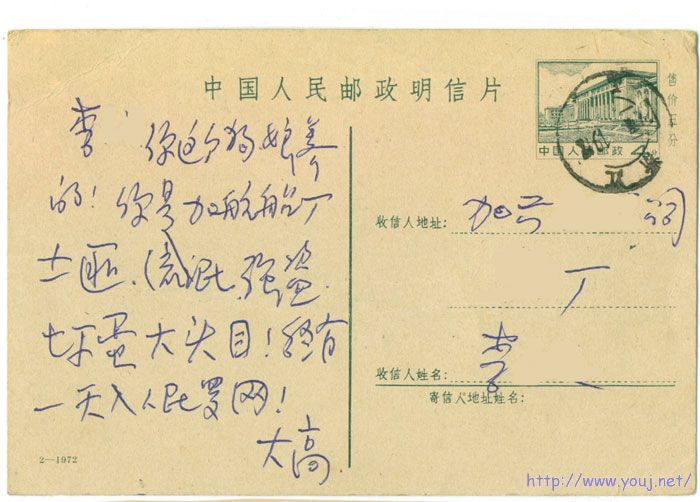 中国人民邮政明信片
售价五分
中国人民邮政
李
你这个狗娘养
的！你是加航船厂
土匪、流氓、强盗、
坏蛋大头目！终有
一天入人民罗网！
大高
收信人地址：
司
厂
收信人姓名：李
寄信人地址姓名：
2—1972
http://www.youj.net/